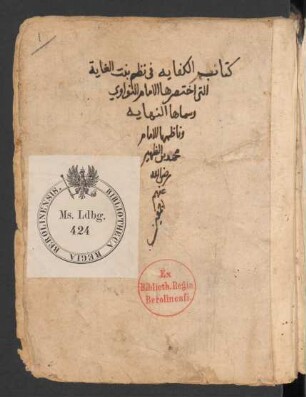 1
كتاب الكفايه فى نظم بنت الغاية
التى اختصرها الامام النواوي
وسماها النهايه
وناظمها للامام
محمد بن الظهير
رضى الله
عنهم
اجمعين
BIBLIOTHECA REGIA BEROLINENSIS.
Ms. Ldbg.
424
Ex
Biblioth. Regia
Berolinensi.